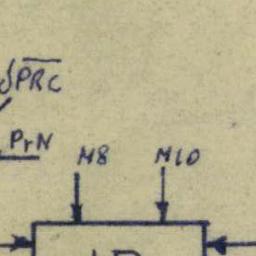 PRC
PrN
M8 M10